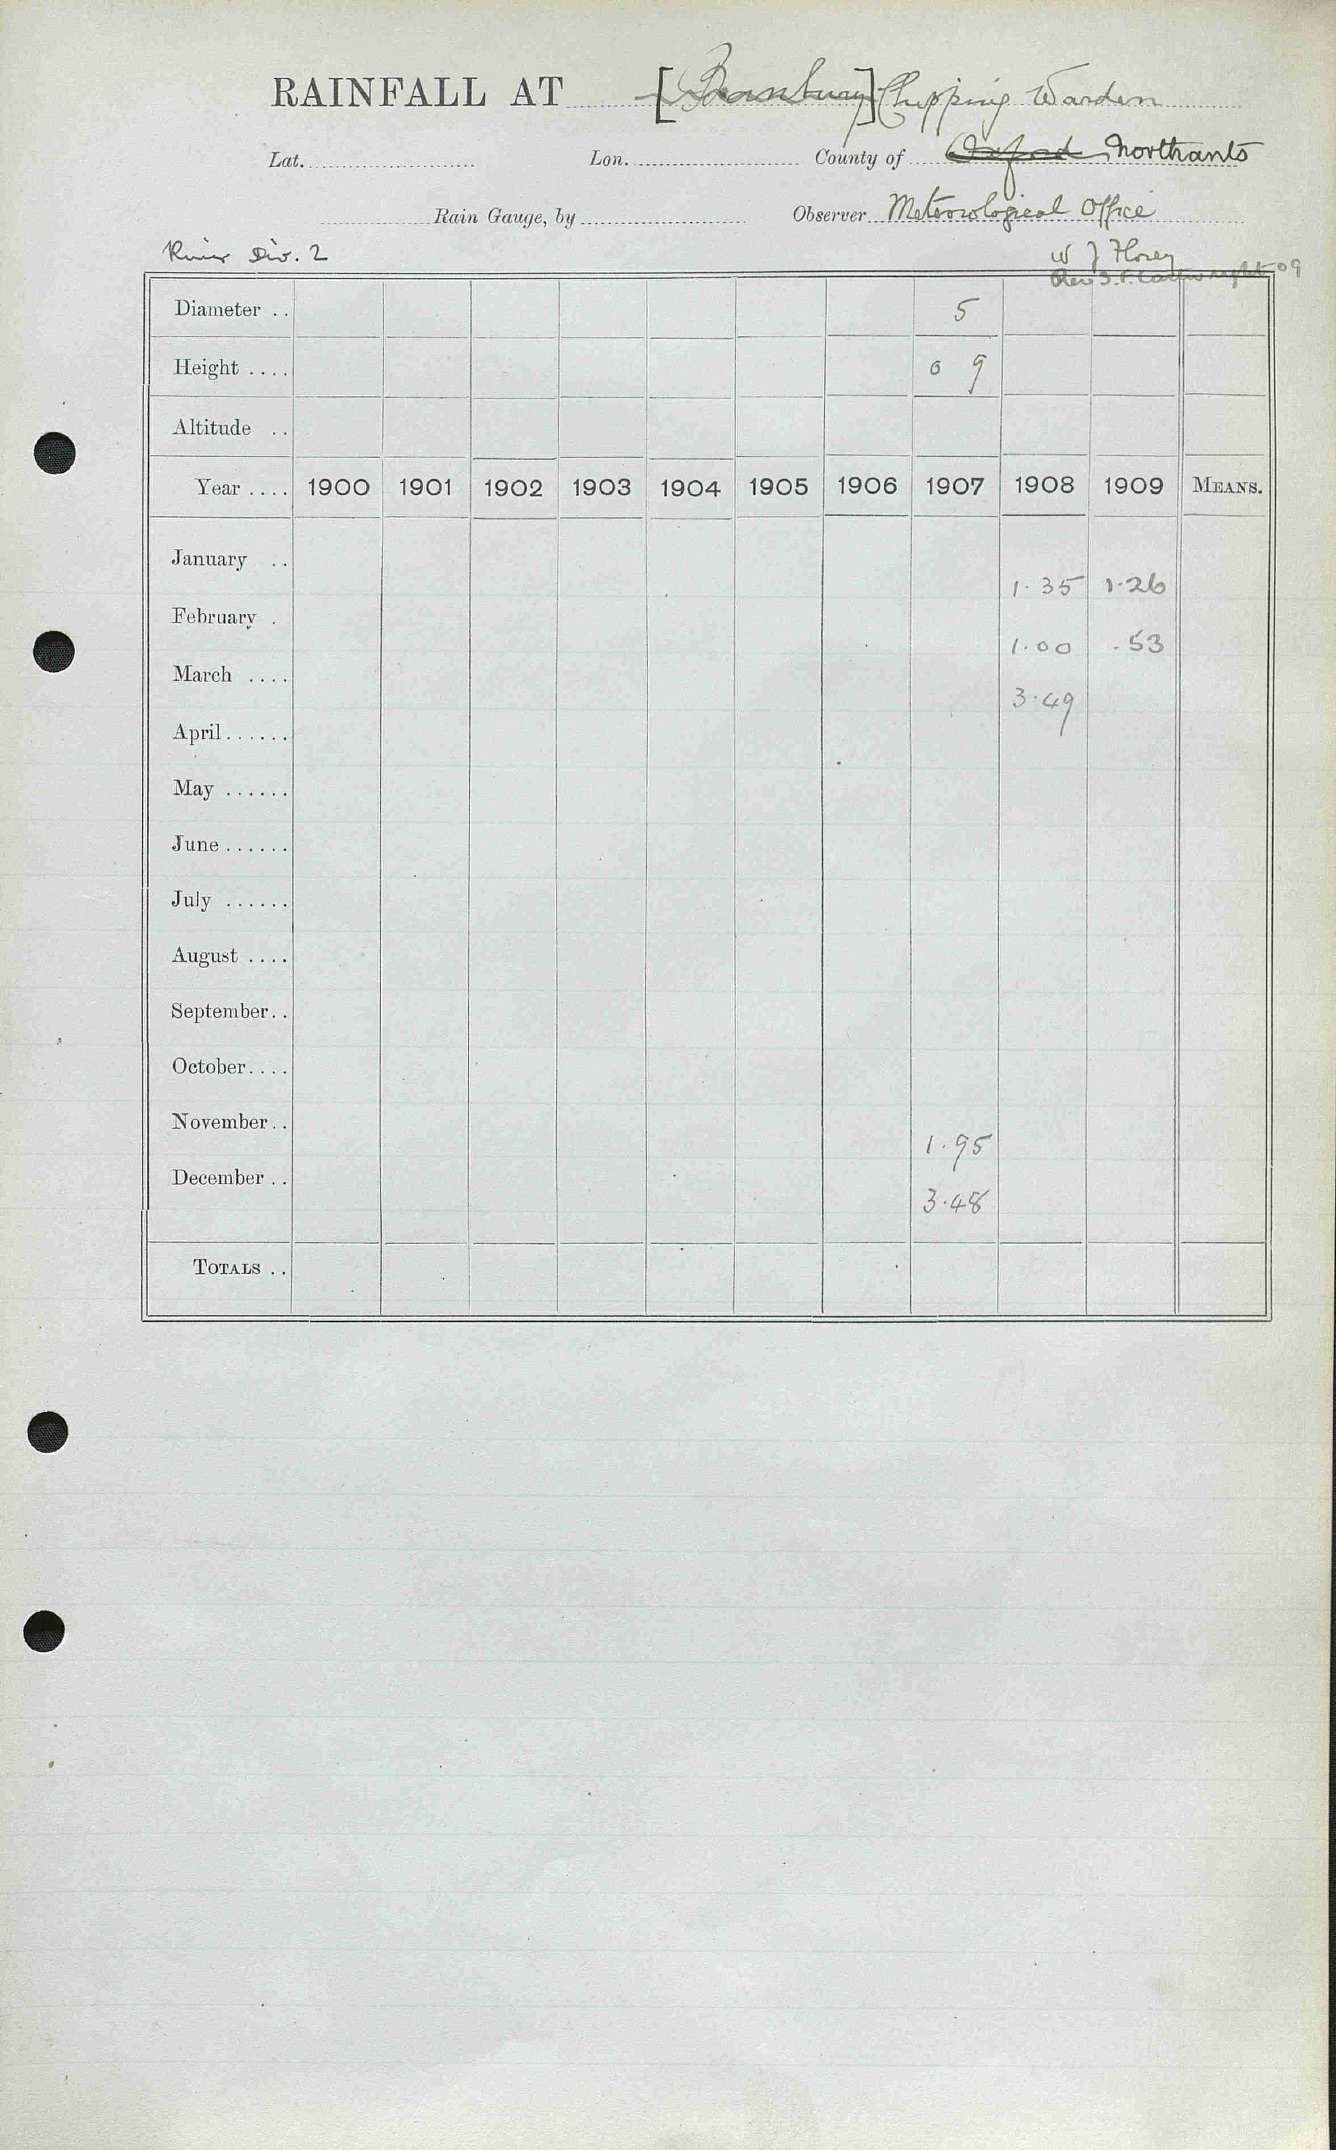 RAINFALL AT [Banbury] Chipping Warden
Lat. Lon. County of Oxford Northants
Rain Gauge, by Observer Meteorological Office
River Div. 2 W J Florey
Rev S. F. Cartwright 09
Diameter . . 5
Height . . . . 0 9
Altitude . .
Year . . . . 1900 1901 1902 1903 1904 1905 1906 1907 1908 1909 MEANS.
January . . 1.35 1.26
February . 1.00 .53
March . . . . 3.49
April . . . . . .
May . . . . . .
June . . . . . .
July . . . . . .
August . . . .
September . .
October . . . .
November . . 1.95
December . . 3.48
TOTALS . .